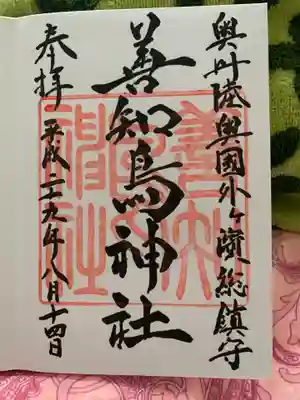 奥州陸奥國外ヶ濱総鎮守
善知鳥神社
奉拝 平成二十九年八月十四日